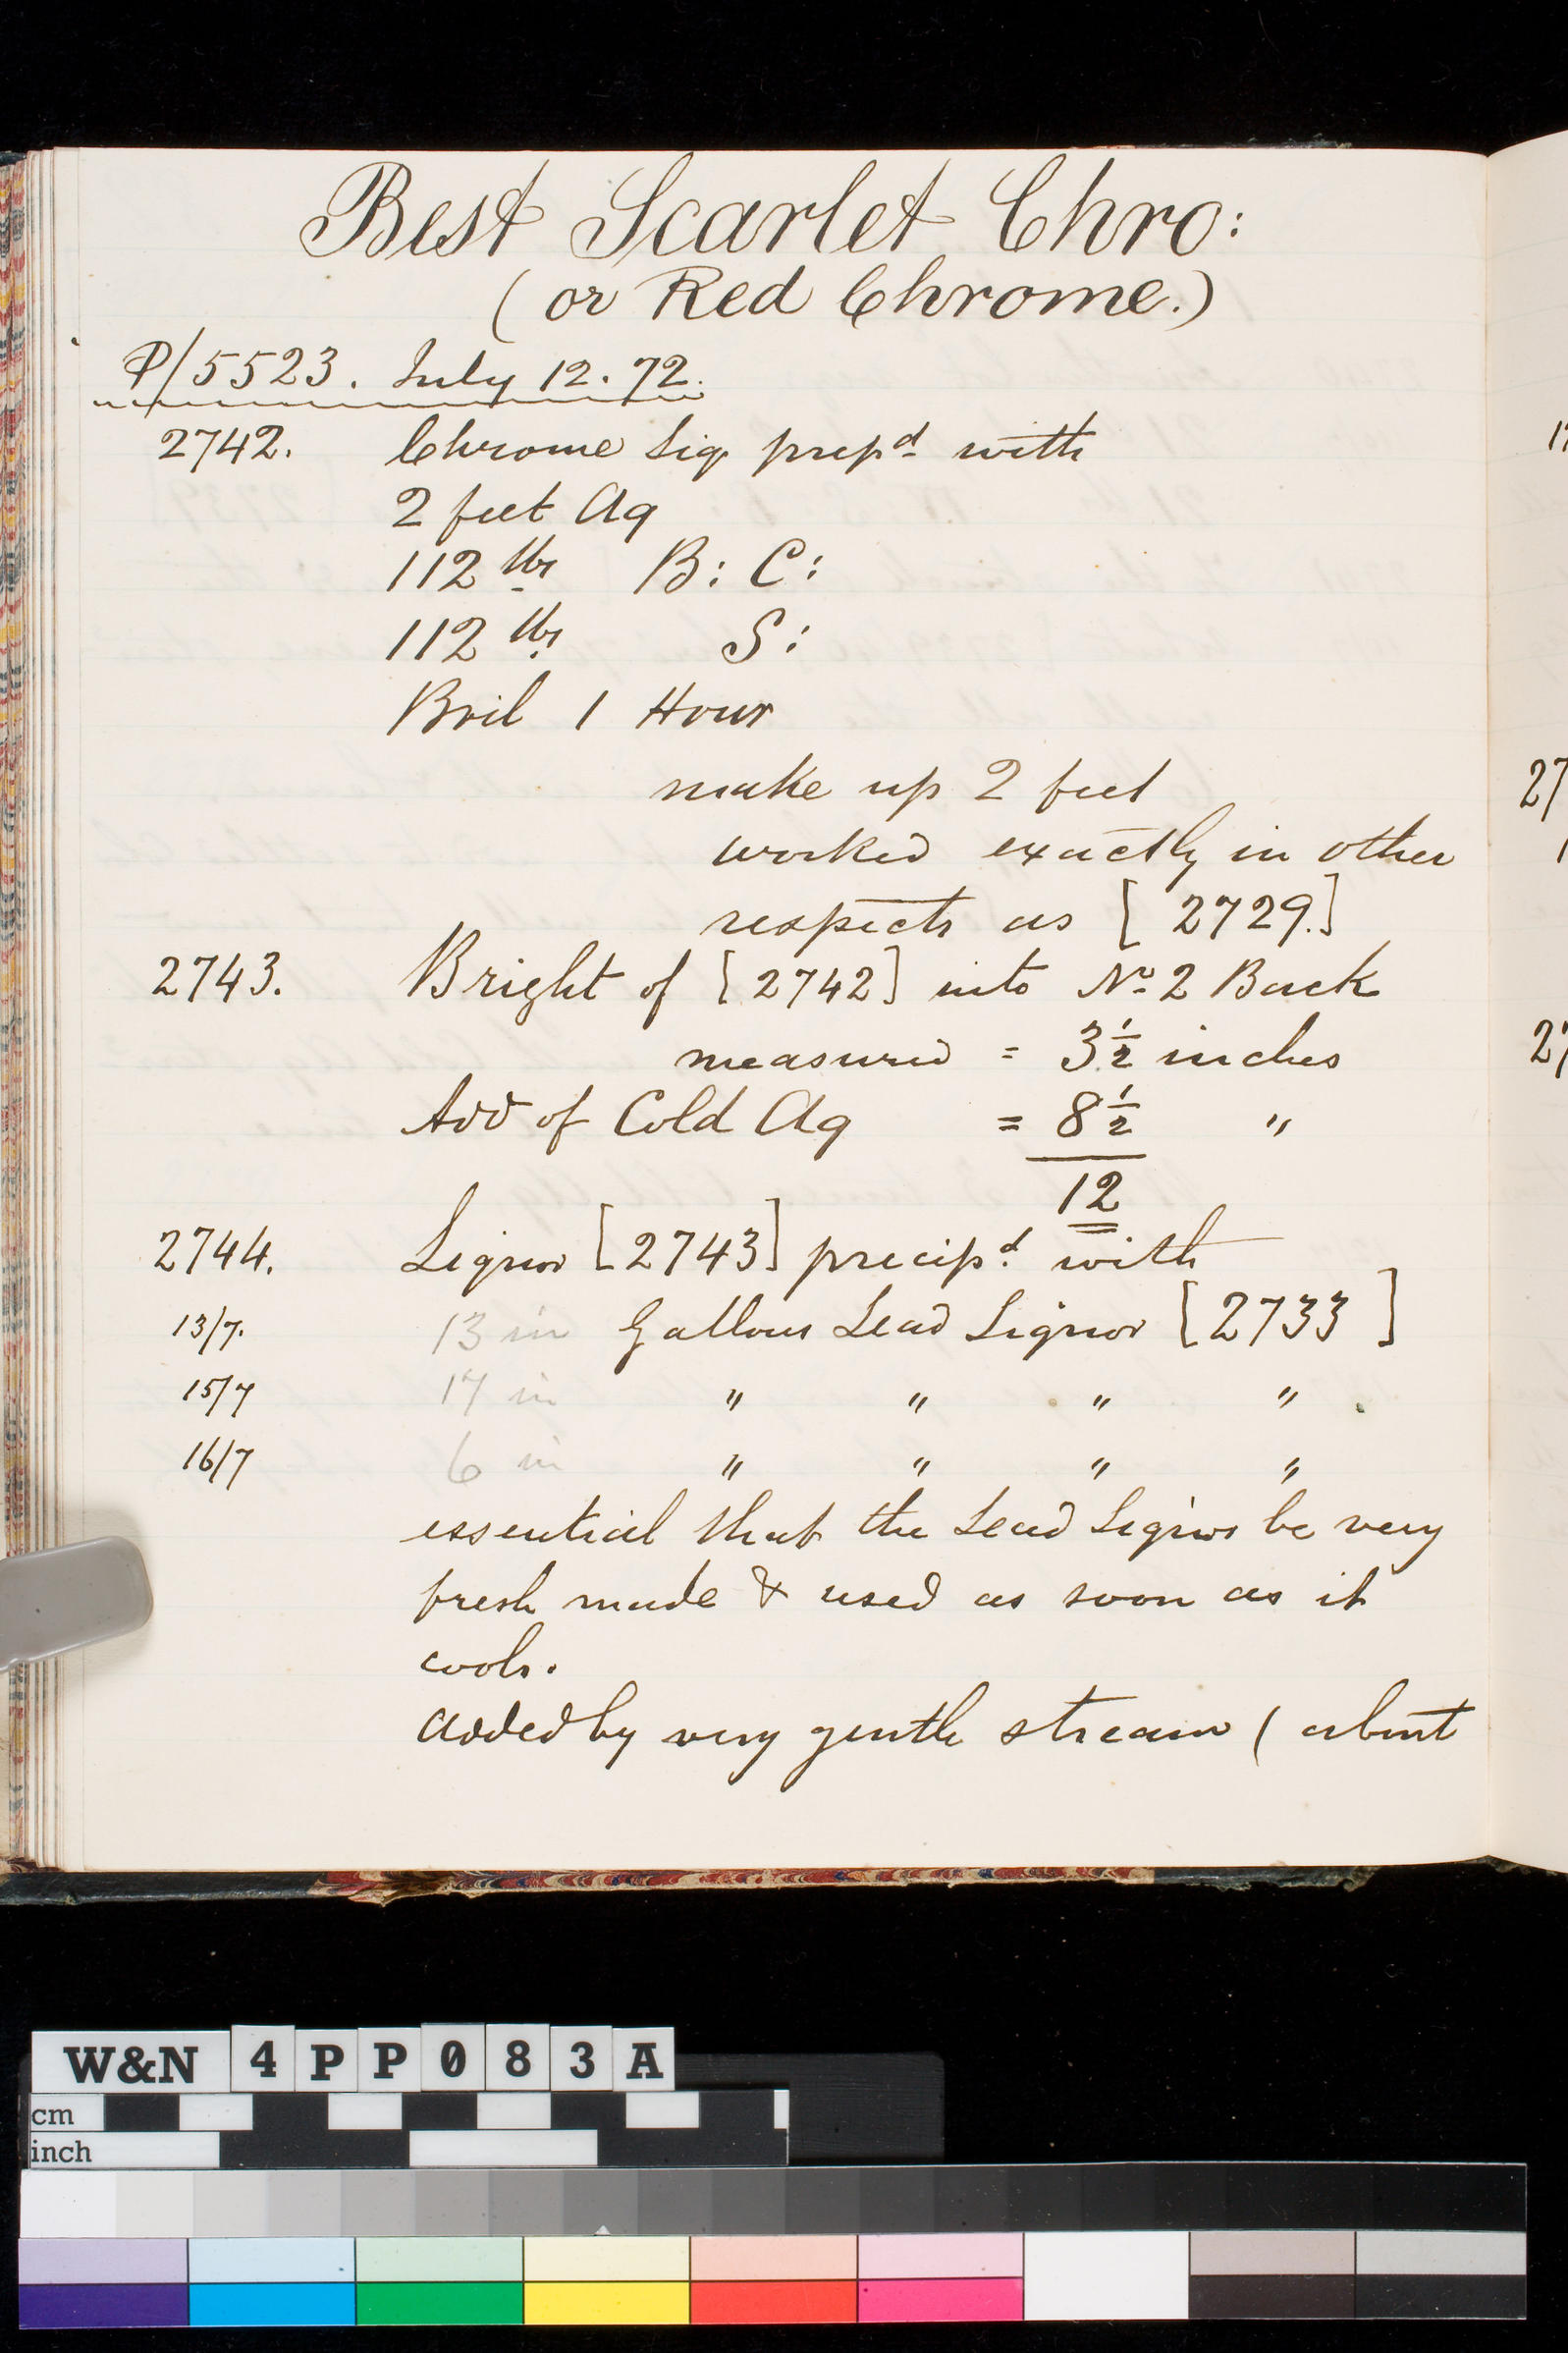 Best Scarlet Chro:
(or Red Chrome.)
P/5523. July 12. 72.
2742. Chrome Liq. prepd with
2 feet Aq
112 lbs B: C:
112 lbs S:
Boil 1 Hour
make up 2 feet
worked exactly in other
respects as [2729.]
2743. Bright of [2742] into No 2 Back
measured = 3 1/2 inches
Add of Cold Aq = 8 1/2 "
12
2744. Liquor [2743] precipd. with
13/7. 13 in Gallons Lead Liquor [2733]
15/7 17 in " " " "
16/7 6 in " " " "
essential that the Lead Liquor be very
fresh made & used as soon as it
cools.
Added by very gentle stream (about
17
27
1
27
W&N 4PP083A
cm
inch